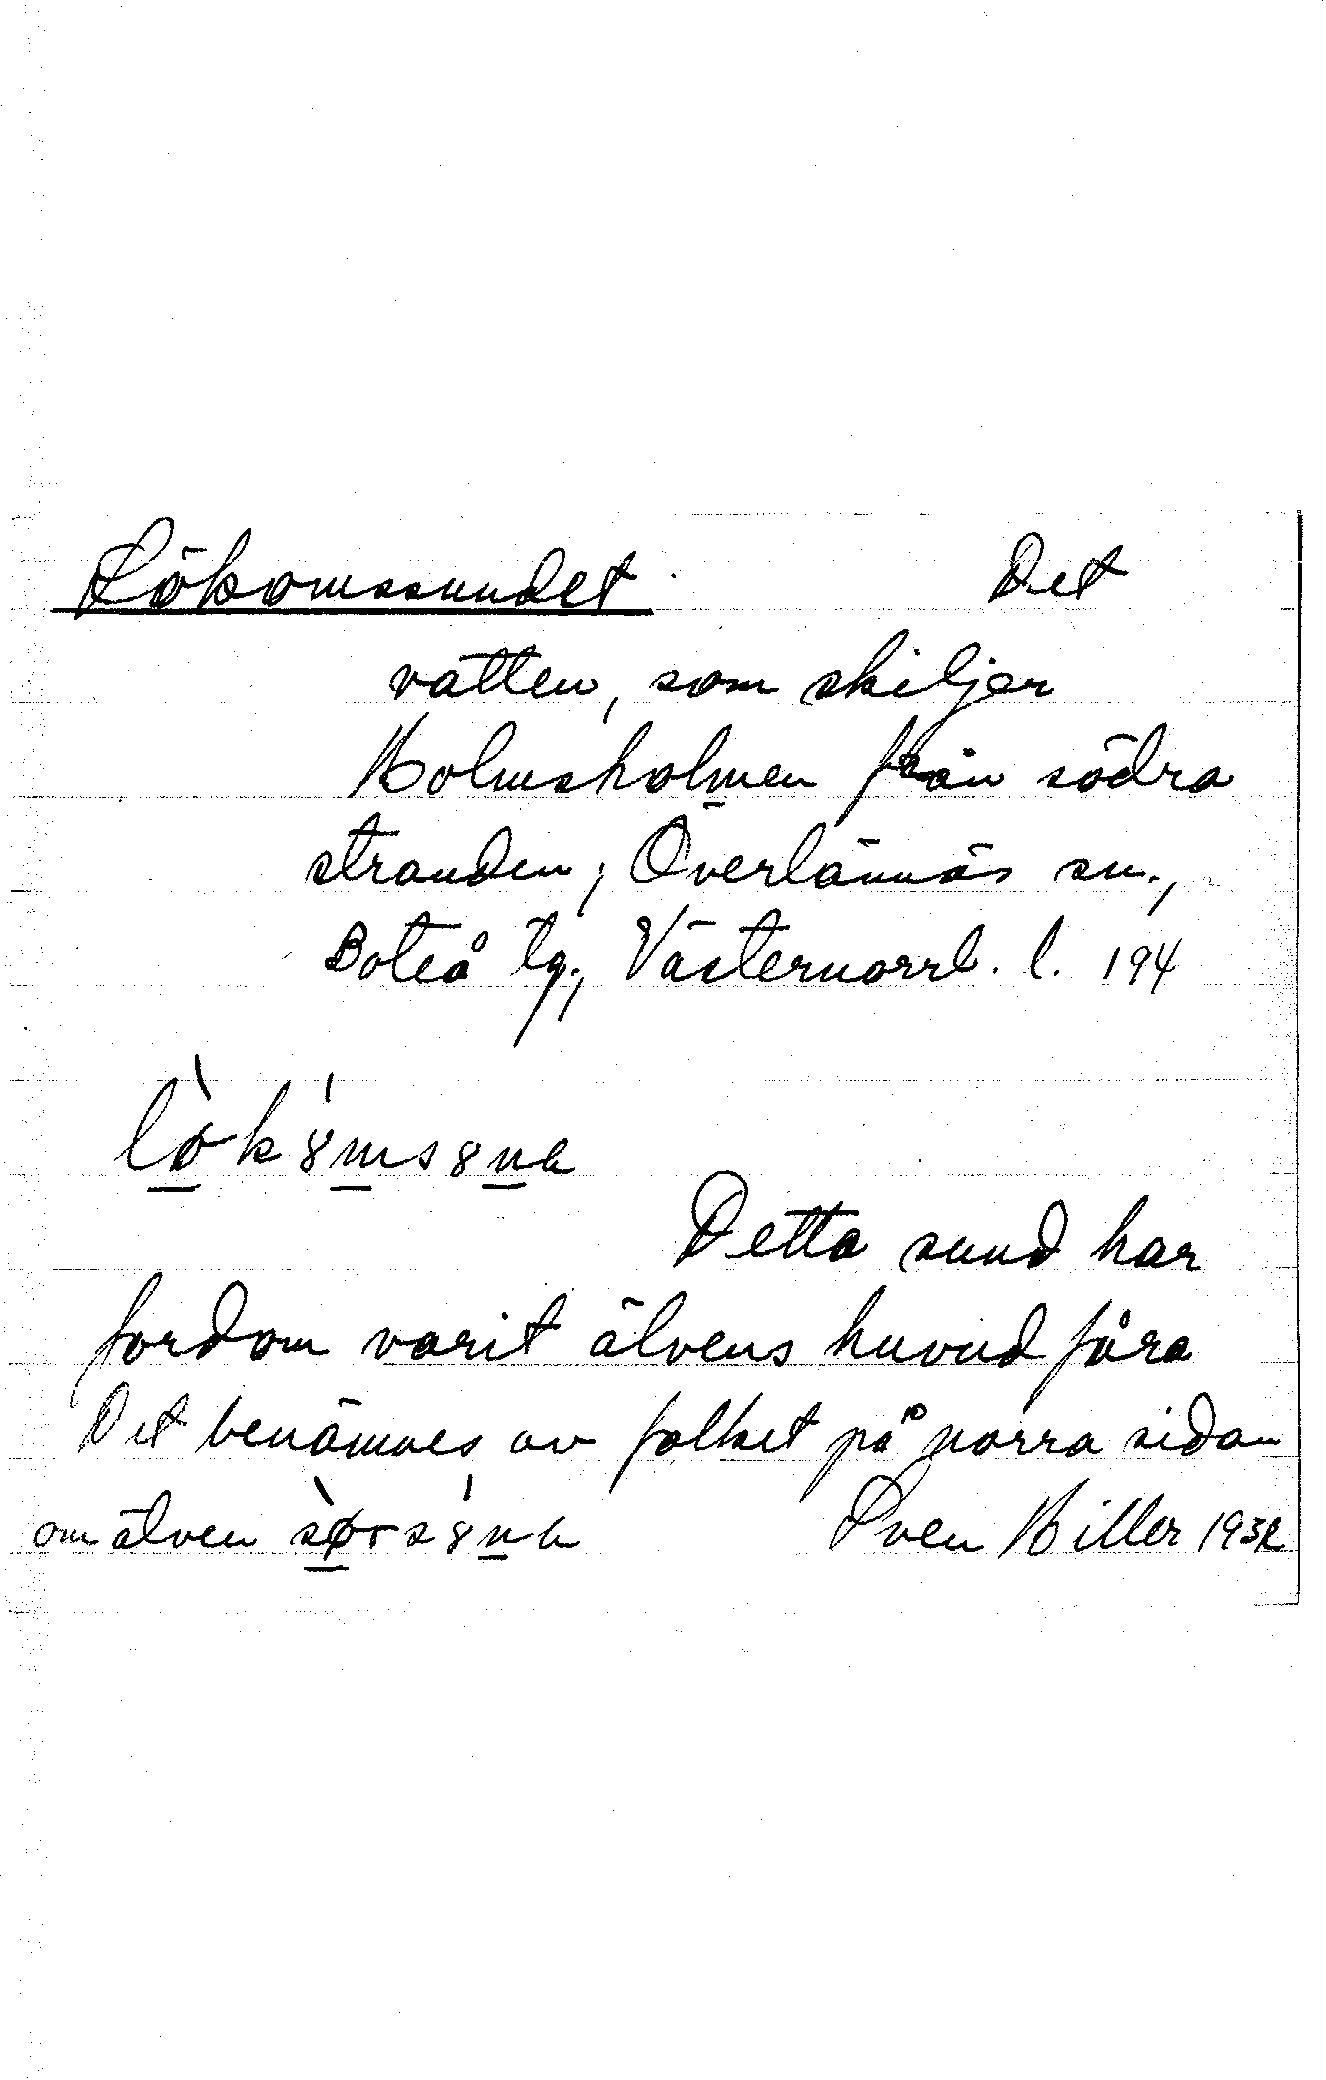 Lökomssundet Det
vatten, som skiljer
Holmsholmen från södra
stranden; Överlännäs sn.,
Boteå tg; Västernorrl. l. 194
Detta sund har
fordom varit älvens huvudfåra
Det benämnes av folket på norra sidan
om älven
Sven Hiller 1932